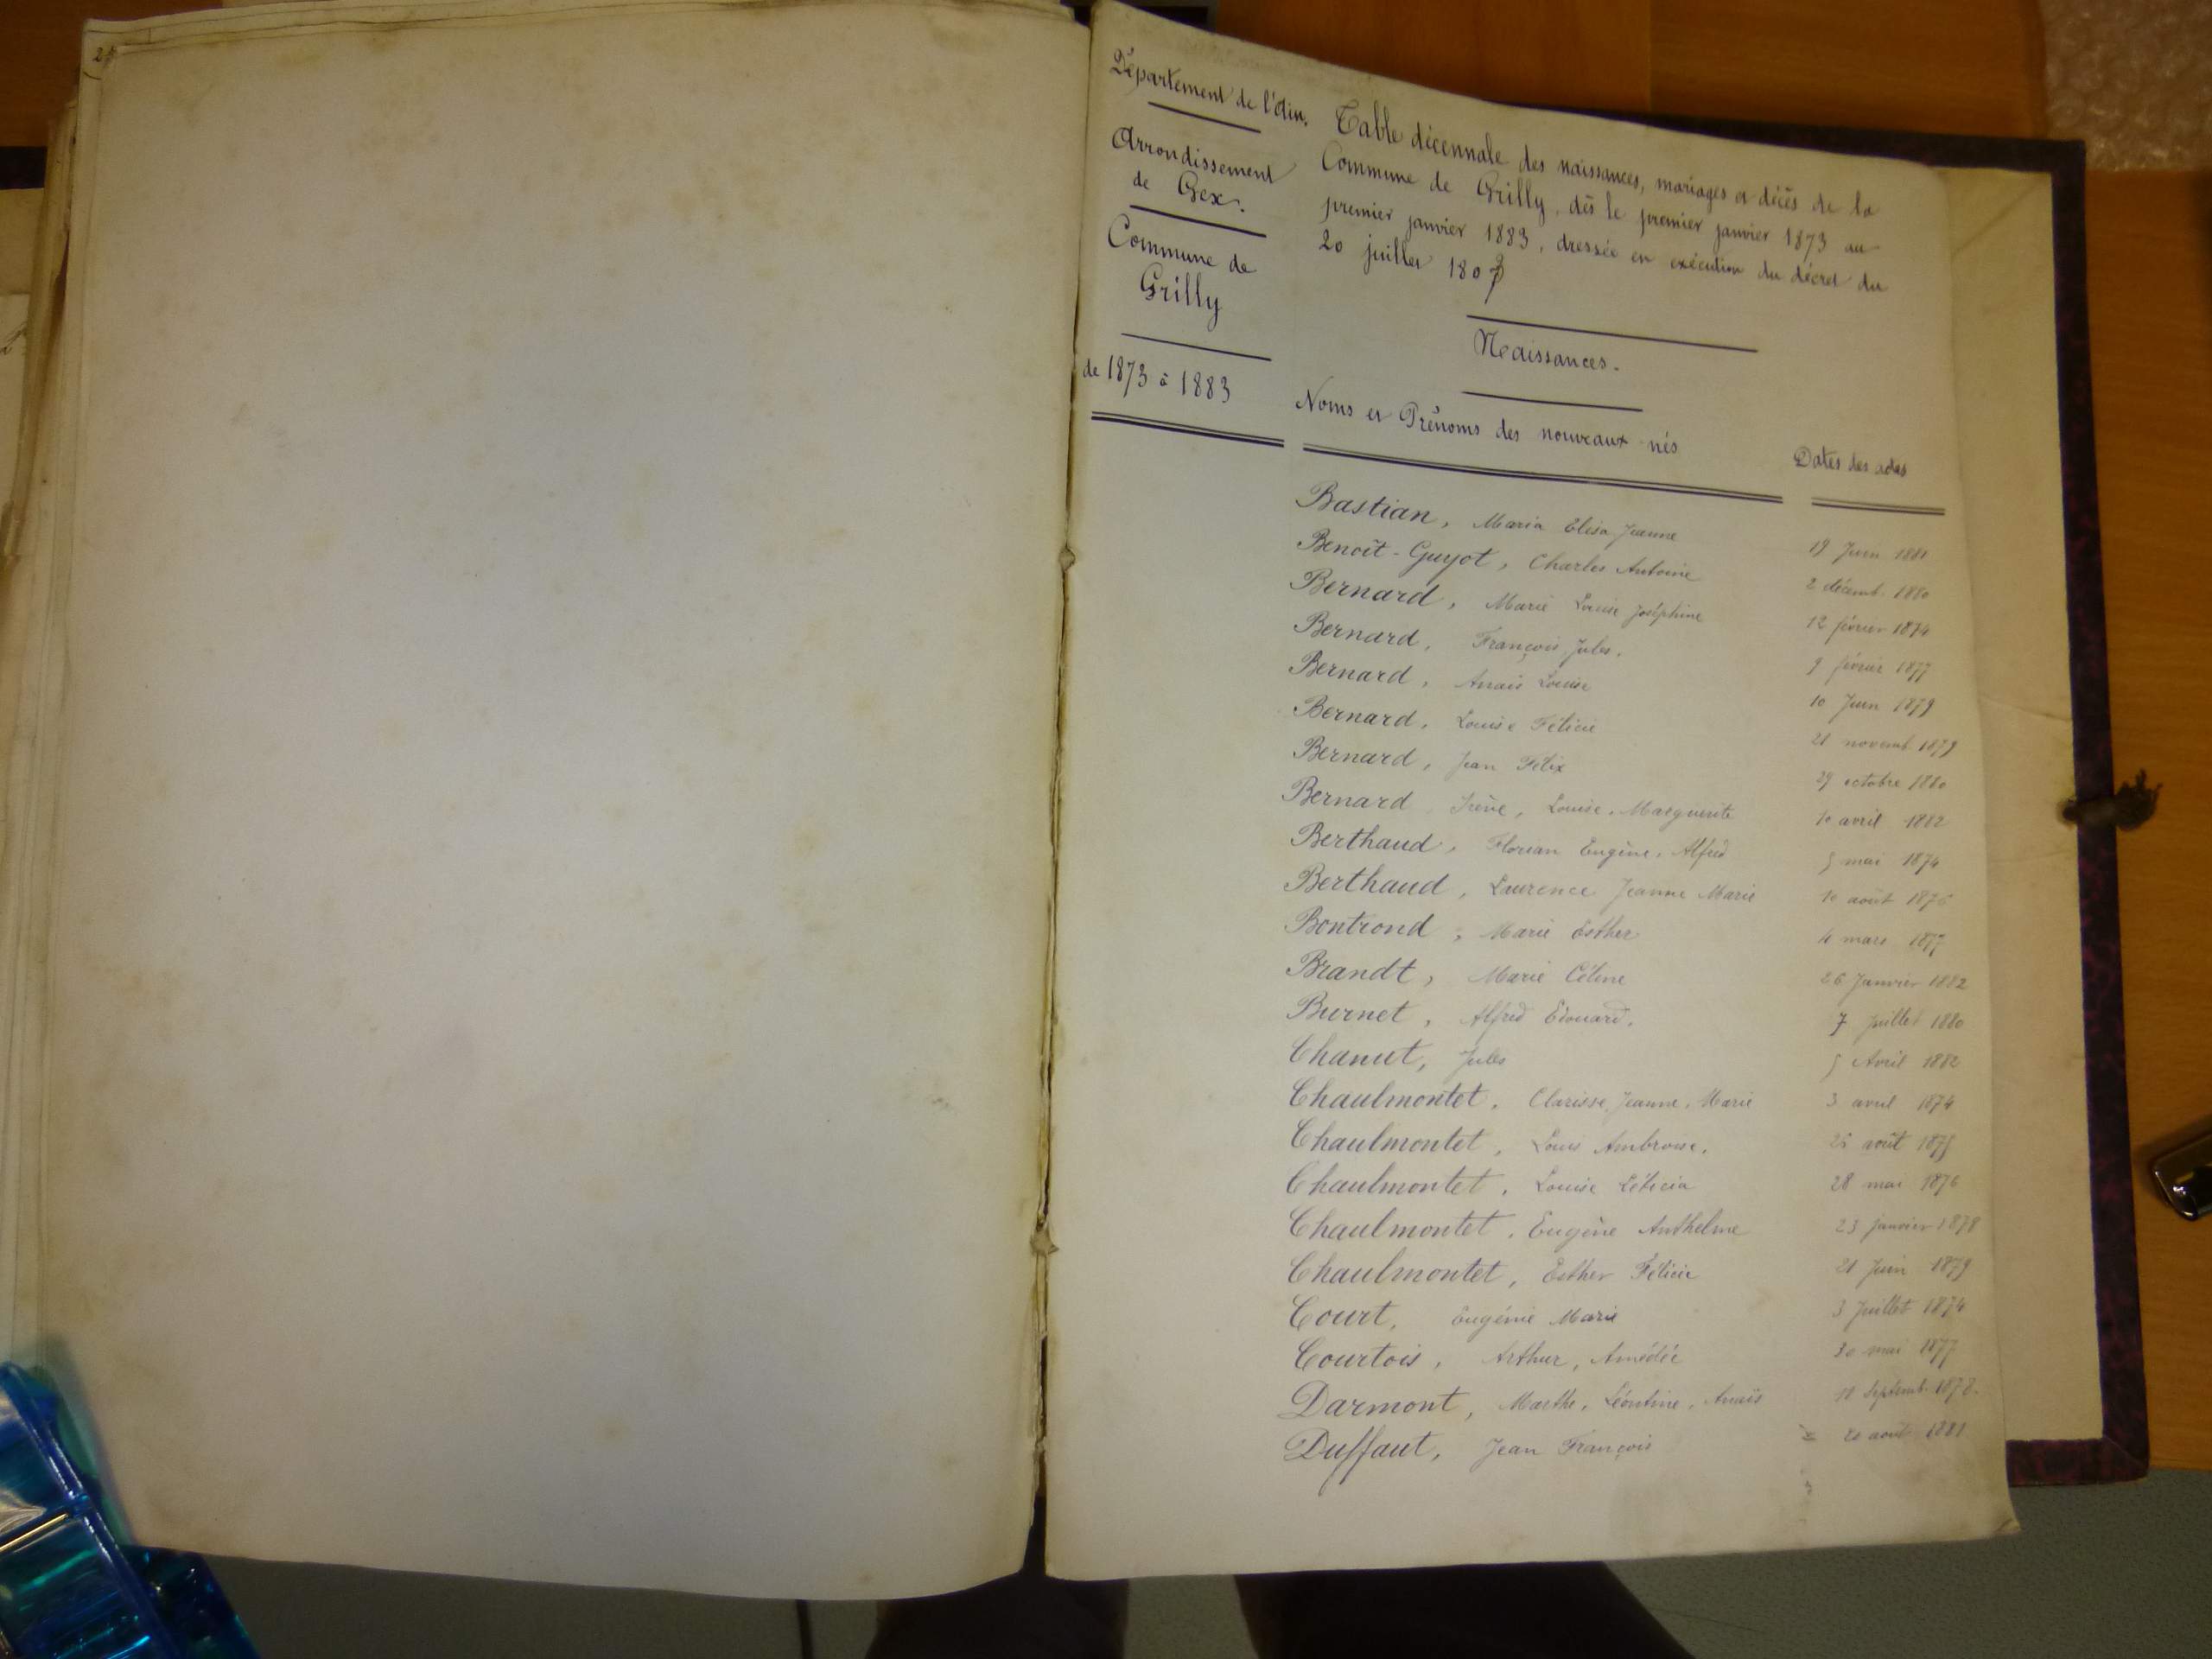 Département de l'Ain.
Arrondissement
de Gex.
Commune de
Grilly
de 1873 à 1883
Table décennale des naissances, mariages et décès de la
Commune de Grilly, dès le premier janvier 1873 au
premier janvier 1883, dressée en exécution du décret du
20 juillet 1807
Naissances.
Noms et Prénoms des nouveaux nés Dates des actes
Bastian, Maria Elisa Jeanne 19 Juin 1881
Benoît-Guyot, Charles Antoine 2 décemb. 1880
Bernard, Marie Louise Joséphine 12 février 1874
Bernard, François, Jules. 9 février 1877
Bernard, Anaïs Louise 10 Juin 1879
Bernard, Louise Félicie 21 novemb. 1879
Bernard, Jean Félix 29 octobre 1880
Bernard Irène, Louise, Marguerite 10 avril 1882
Berthaud, Florian Eugène, Alfred 5 mai 1874
Berthaud, Laurence Jeanne Marie 10 août 1876
Bontrond, Marie Esther 4 mars 1877
Brandt, Marie Céline 26 Janvier 1882
Burnet, Alfred Edouard. 7 juillet 1880
Chanut, Jules 5 Avril 1882
Chaulmontet, Clarisse, Jeanne, Marie 3 avril 1874
Chaulmontet, Louis Ambroise. 25 août 1875
Chaulmontet, Louise Léticia 28 mai 1876
Chaulmontet, Eugène Anthelme 23 janvier 1878
Chaulmontet, Esther Félicie 21 Juin 1879
Court, Eugénie Marie 3 Juillet 1874
Courtois, Arthur, Amédée 30 mai 1877
Darmont, Marthe, Léontine, Anaïs 18 Septemb. 1878.
Duffaut, Jean François 20 août 1881